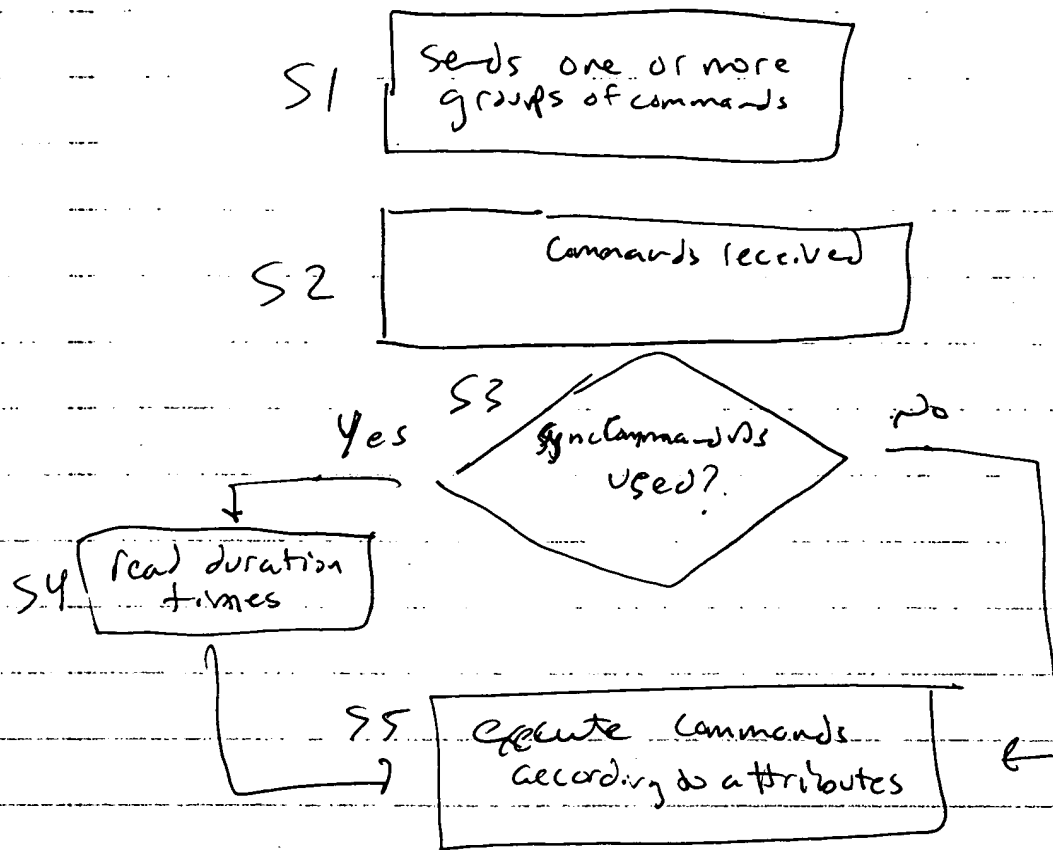 S1
Sends one or more
groups of commands
S2
Commands received
S3
Yes
No
syncCommands
used?
S4
read duration
times
S5
execute commands
according to attributes